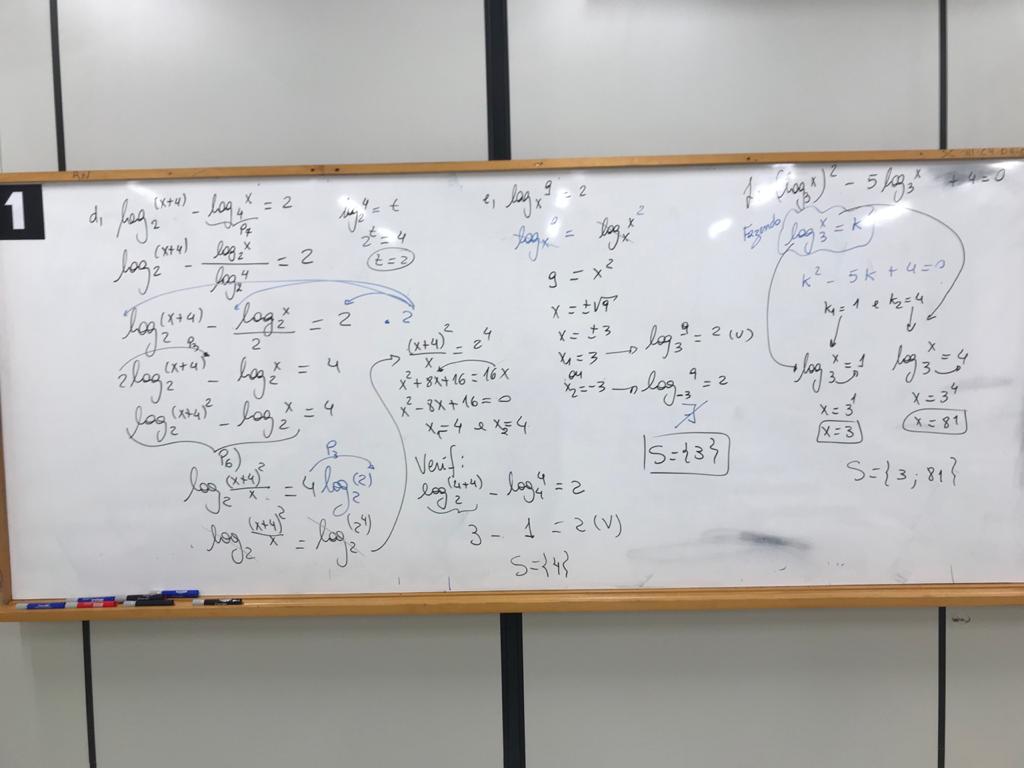 1
d) log₂^(x+4) - log₄^x = 2
P₇
log₂^4 = t
2^t = 4
t = 2
log₂^(x+4) - log₂^x / log₂^4 = 2
log₂^(x+4) - log₂^x / 2 = 2 · 2
P₃
2log₂^(x+4) - log₂^x = 4
log₂^(x+4)² - log₂^x = 4
P6)
log₂^(x+4)²/x = 4 log₂^(2)
P₃
log₂^(x+4)²/x = log₂^(2⁴)
(x+4)²/x = 2⁴
x² + 8x + 16 = 16x
x² - 8x + 16 = 0
x₁ = 4 e x₂ = 4
Verif:
log₂^(4+4) - log₄^4 = 2
3 - 1 = 2 (V)
S = {4}
e) logₓ^9 = 2
logₓ^9 = logₓ^x²
9 = x²
x = ±√9
x = ±3
x₁ = 3 → log₃^9 = 2 (V)
ou
x₂ = -3 → log₋₃^9 = 2
∄
S = {3}
f. (log₃^x)² - 5log₃^x + 4 = 0
Fazendo log₃^x = k
k² - 5k + 4 = 0
k₁ = 1 e k₂ = 4
log₃^x = 1
x = 3¹
x = 3
log₃^x = 4
x = 3⁴
x = 81
S = {3 ; 81}